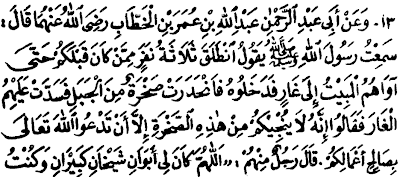 ١٣. وَعَنْ أَبِي عَبْدِ الرَّحْمٰنِ عَبْدِ اللهِ بْنِ عُمَرَ بْنِ الْخَطَّابِ رَضِيَ اللهُ عَنْهُمَا قَالَ:
سَمِعْتُ رَسُولَ اللهِ ﷺ يَقُولُ انْطَلَقَ ثَلَاثَةُ نَفَرٍ مِمَّنْ كَانَ قَبْلَكُمْ حَتَّى
آوَاهُمُ الْمَبِيْتُ إِلَى غَارٍ فَدَخَلُوهُ فَانْحَدَرَتْ صَخْرَةٌ مِنَ الْجَبَلِ فَسَدَّتْ عَلَيْهِمُ
الْغَارَ فَقَالُوا إِنَّهُ لَا يُنْجِيْكُمْ مِنْ هٰذِهِ الصَّخْرَةِ إِلَّا أَنْ تَدْعُوا اللهَ تَعَالَى
بِصَالِحِ أَعْمَالِكُمْ. قَالَ رَجُلٌ مِنْهُمْ: «اللّٰهُمَّ كَانَ لِي أَبَوَانِ شَيْخَانِ كَبِيْرَانِ وَكُنْتُ